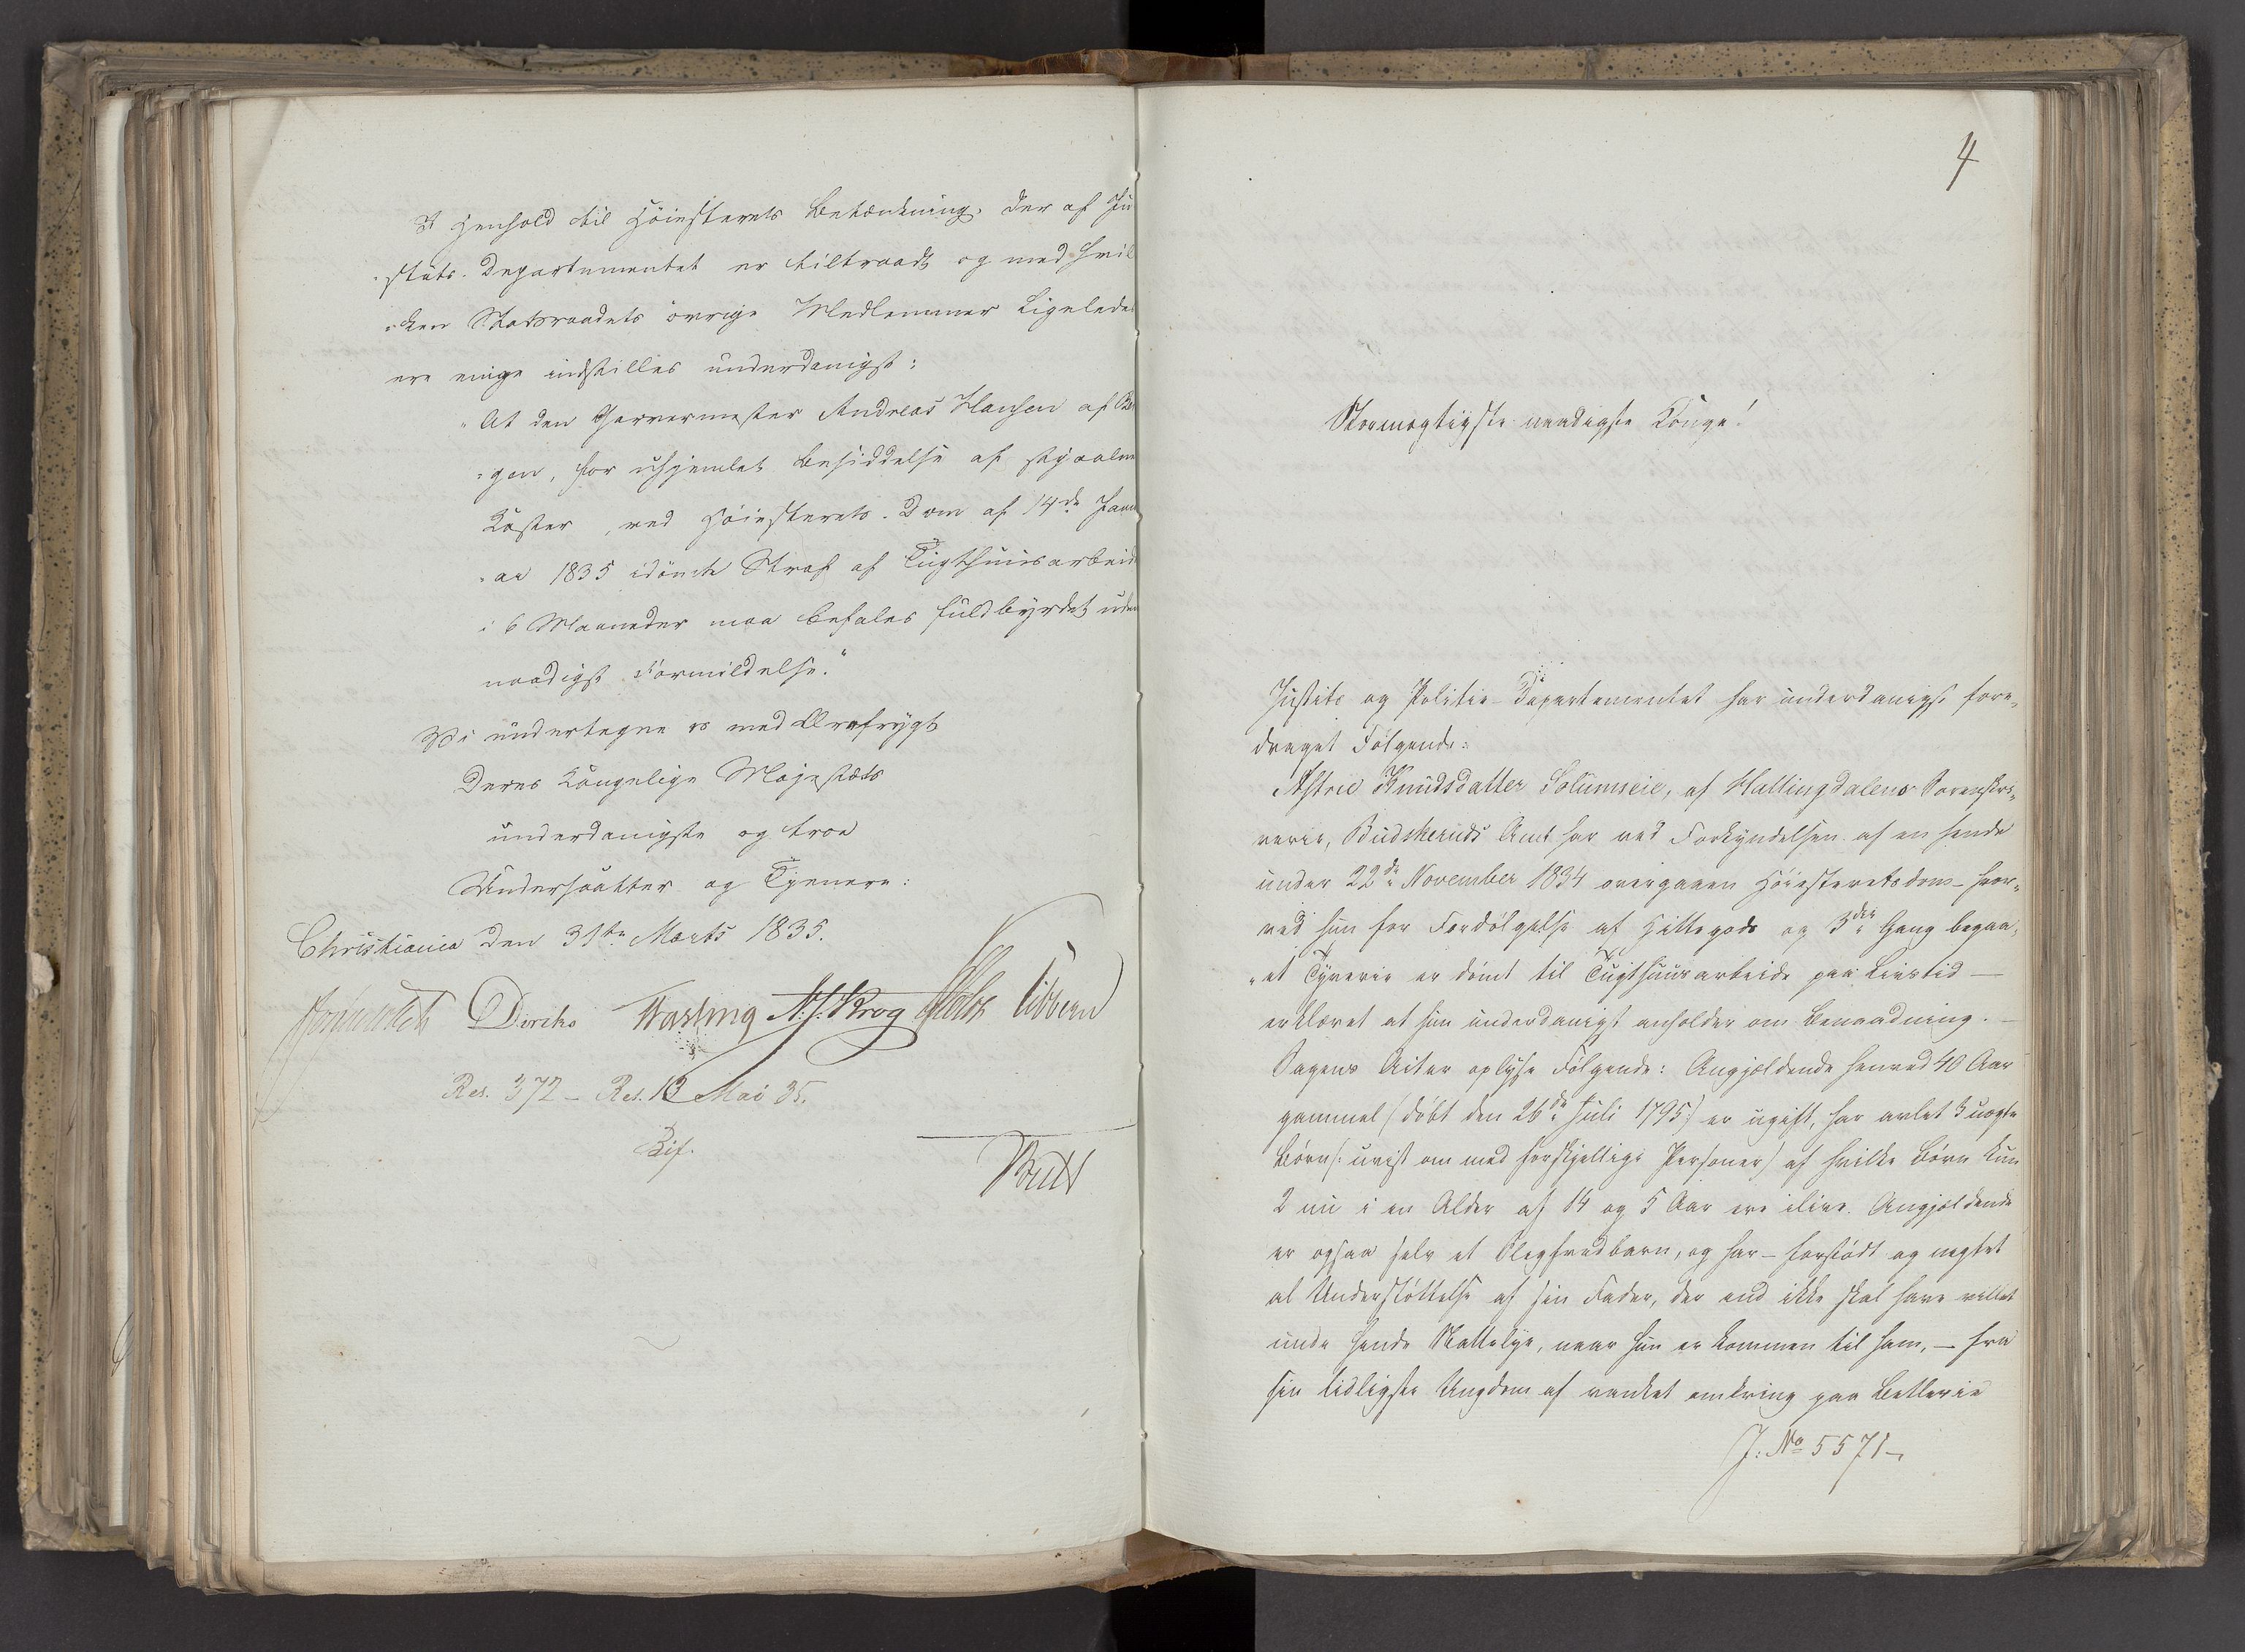 I Henhold til Höiesterets Betænkning, der af Ju
"stits-Departementet er tiltraadt og med hvil
"ken Statsraadets övrige Medlemmer ligeledes
ere enige indstilles underdanigst:
"At den Garvermester Andreas Hansen af Ber
"gen, for uhjemlet Besiddelse af stjaalne
Koster, ved Höiesterets-Dom af 14de Janu
"ar 1835 idömte Straf af Tugthuusarbeide
i 6 Maaneder maa befales fuldbyrdet uden
naadigst Formildelse."
Vi undertegne os med Ærefrygt
Deres Kongelige Majestæts
underdanigste og troe
Undersaatter og Tjenere:
Christiania den 31te Marts 1835.
Diriks Vogt Fasting N. J. Krog Holst Vibbern
Res. 372 - Res. 13 Mai 35.
Bif.
4
Stormægtigste naadigste Konge!
Justits og Politie-Departementet har underdanigst fore-
draget Fölgende:
Astrie Knudsdatter Solumseie, af Hallingdalens Sorenskri-
verie, Budskeruds Amt har ved Forkyndelsen af en hende
under 22de November 1834 overgaaen Höiesteretsdom - hvor-
ved hun for Fordölgelse af Hittegods og 3die Gang begaa-
"et Tyverie er dömt til Tugthuusarbeide paa Livstid —
erklæret at hun underdanigst anholder om Benaadning. —
Sagens Acter oplyse Fölgende: Angjældende henved 40 Aar
gammel (döbt den 26de Juli 1795) er ugift, har avlet 3 uægte
Börn (: uvist om med forskjellige Personer) af hvilke Börn kun
2 nu i en Alder af 14 og 5 Aar ere ilive. Angjældende
er ogsaa selv et Slegfredbarn, og har - forstödt og negtet
al Understöttelse af sin Fader, der end ikke skal have villet
unde hende Nattelye, naar hun er kommen til ham, — fra
sin tidligste Ungdom af vanket omkring paa Betlerie
J: No 5571-